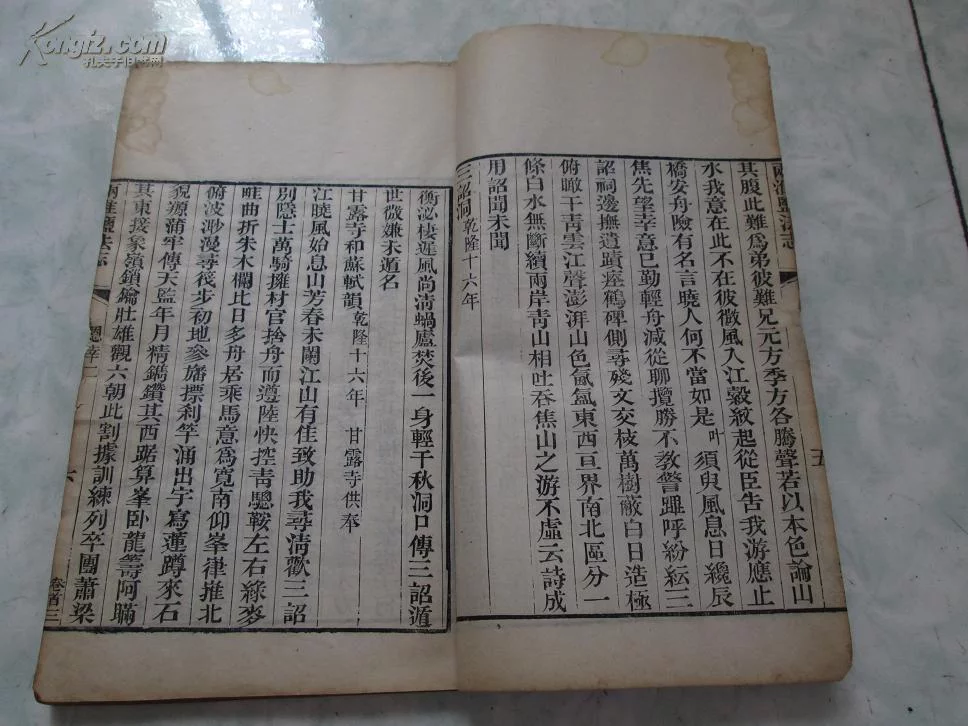 Kongfz.com
孔夫子旧书网
兩淮鹽法志
五
其腹此難爲弟彼難兄元方季方各騰聲若以本色論山
水我意在此不在彼微風入江縠紋起從臣告我游應止
橋安舟險有名言曉人何不當如是叶須臾風息日纔辰
焦先望幸意已勤輕舟減從聊攬勝不教警蹕呼紛紜三
詔祠邊撫遺蹟瘞鶴碑側尋殘文交枝萬樹蔽白日造極
俯瞰干青雲江聲澎湃山色氤氳東西亘界南北區分一
條白水無斷續兩岸青山相吐吞焦山之游不虛云詩成
用詔聞未聞
三詔洞乾隆十六年
衡泌棲遲風尚清蝸廬焚後一身輕千秋洞口傳三詔遁
世微嫌未遁名
甘露寺和蘇軾韻乾隆十六年 甘露寺供奉
江曉風始息山芳春未闌江山有佳致助我尋清歡三詔
別隱士萬騎擁材官捨舟而遵陸快控青驄鞍左右綠麥
畦曲折朱木欄比日多舟居乘馬意爲寬南仰峯嵂推北
俯波渺漫尋筏步初地參旛摽刹竿涌出宇寫蓮蹲來石
貌獂蒲牢傳天監年月精鐫鑽其西踞算峯卧龍籌阿瞞
其東接象嶺鎖鑰壯雄觀六朝此割據訓練列卒團蕭梁
兩淮鹽法志
恩幸二
六
卷首三